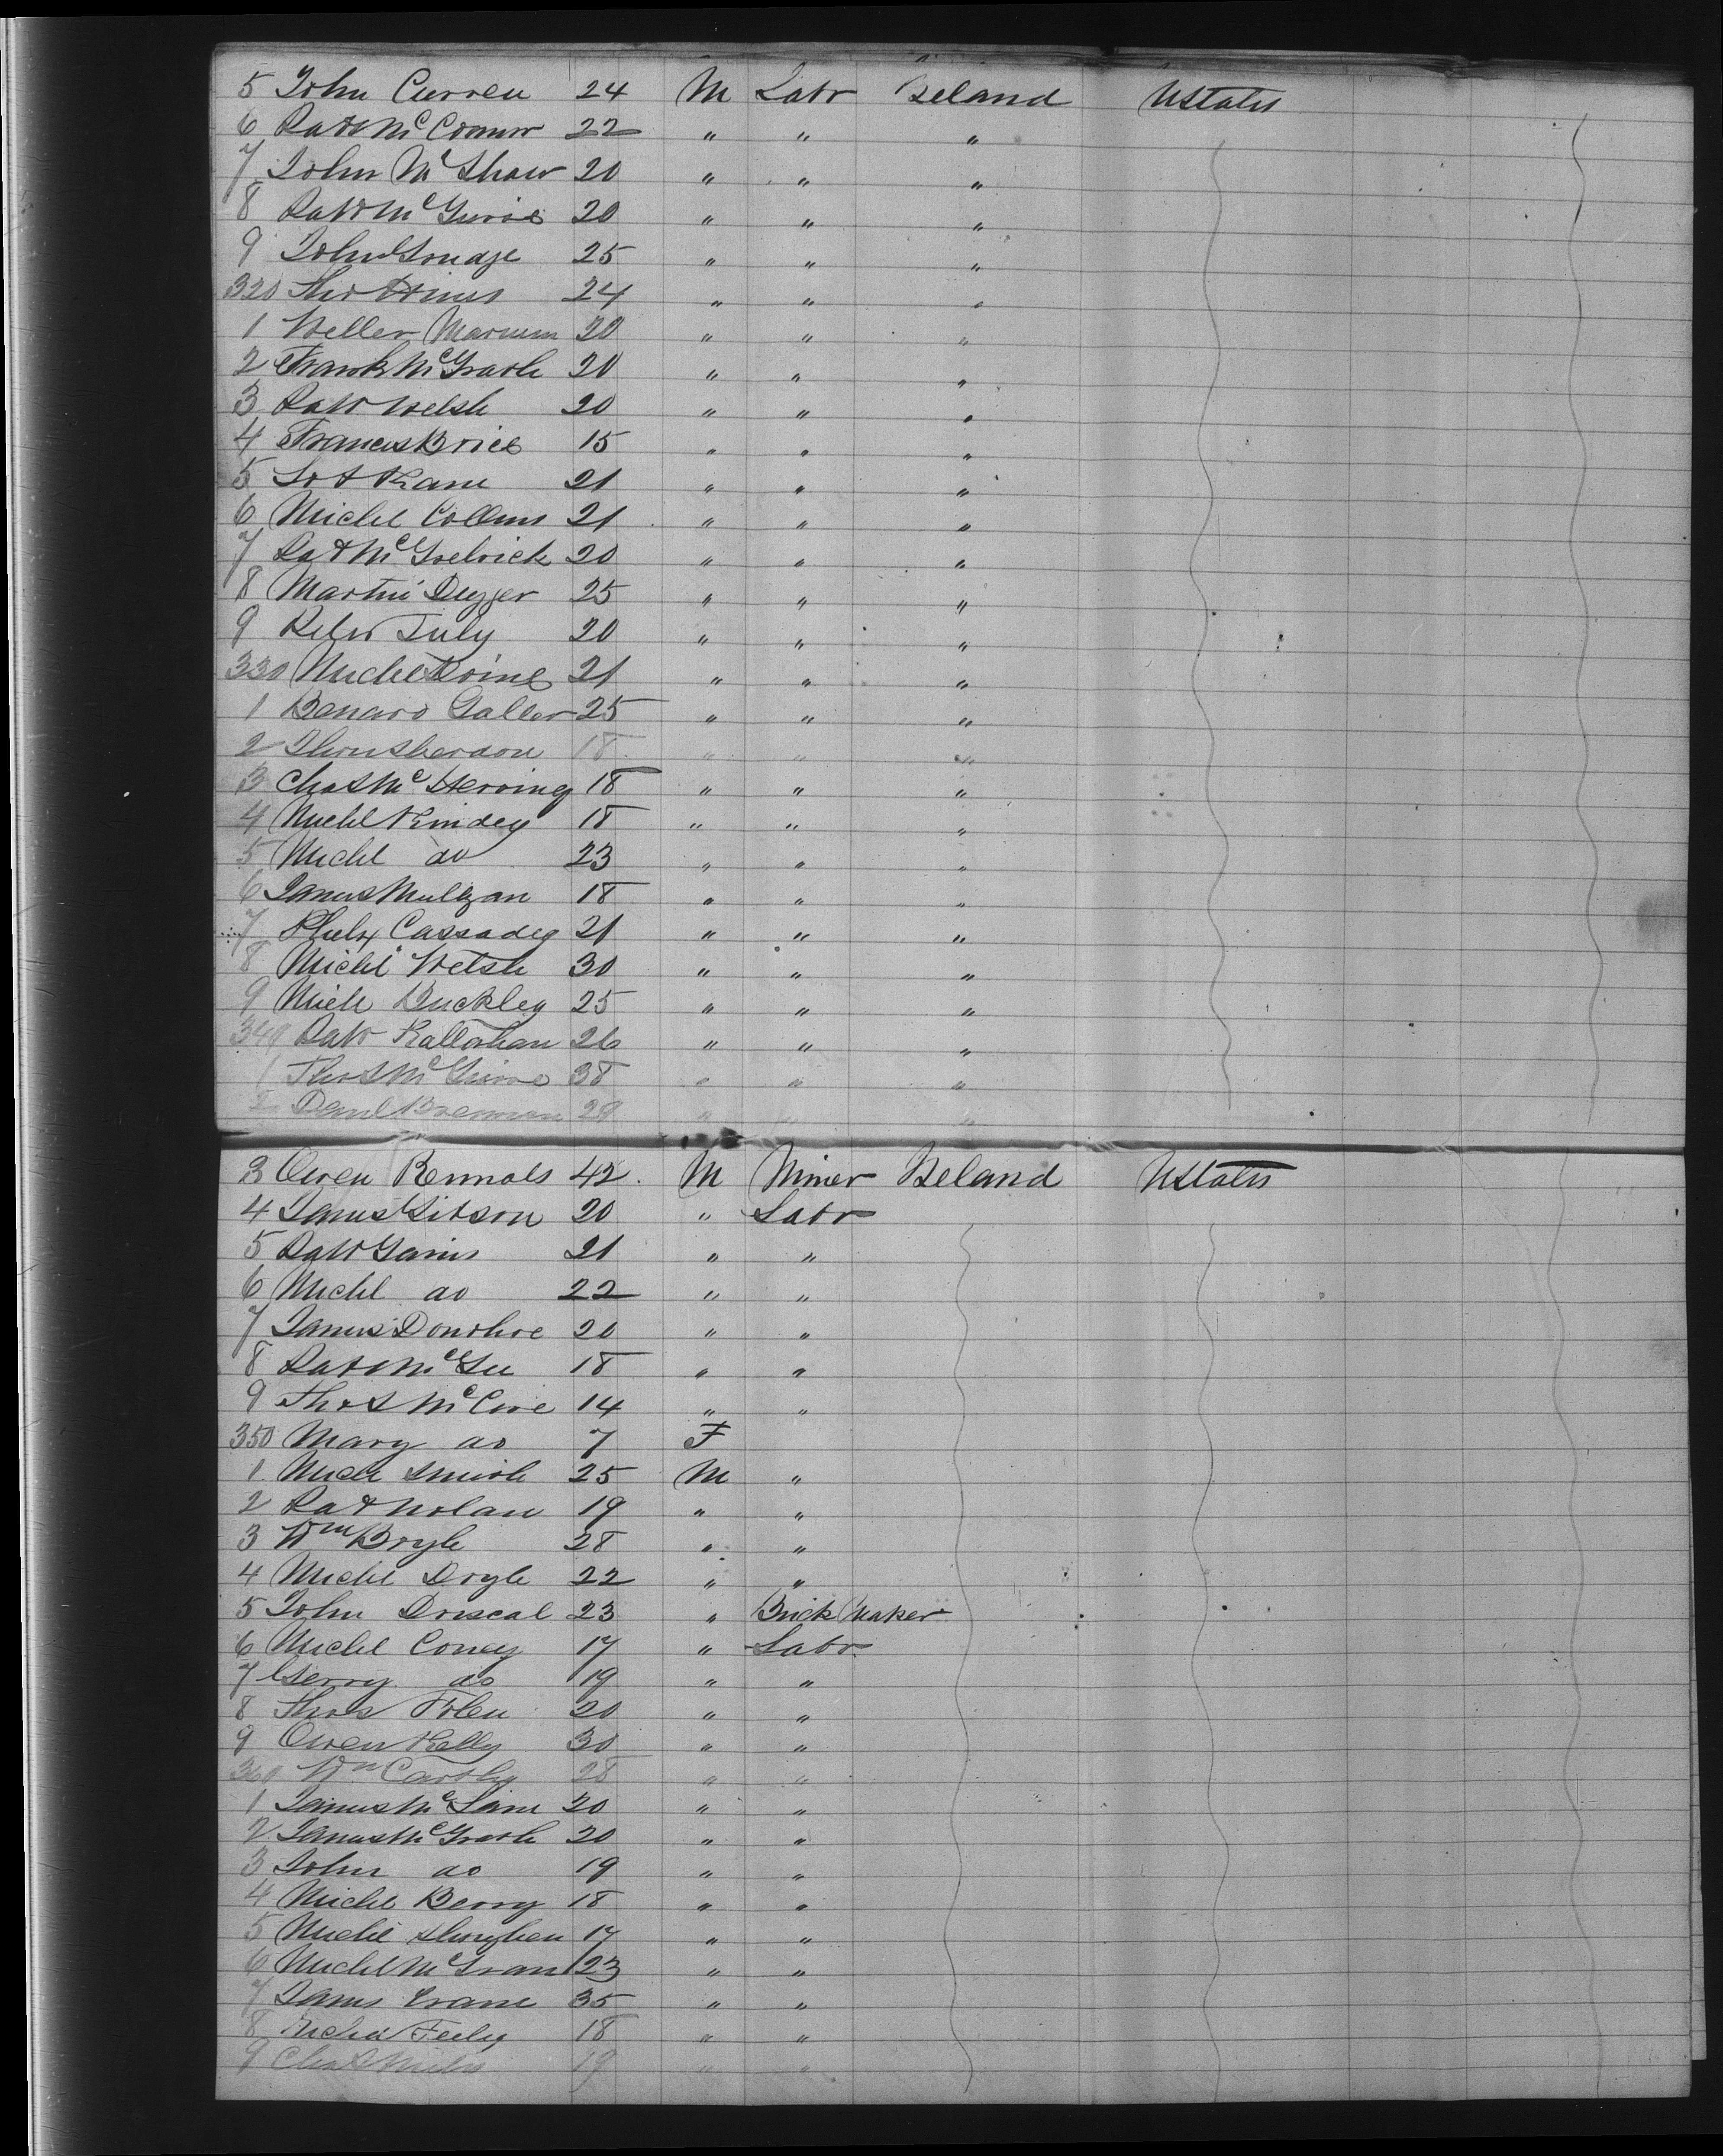 5 John Curren 24 M Labr Ireland U States
6 Patk McConnor 22 " " "
7 John McShaw 20 " " "
8 Patk McGuire 20 " " "
9 John 25 " " "
320 Thos Hines 24 " " "
1 Weller 20 " " "
2 Frank McGrath 20 " " "
3 Patk Welsh 20 " " "
4 Francis Brice 15 " " "
5 Kane 21 " " "
6 Michl Collins 21 " " "
7 Pat McGoelrick 20 " " "
8 Martin 25 " " "
9 Peter Tuly 20 " " "
330 Michl 21 " " "
1 Benard Galler 25 " " "
2 18 " " "
3 Chas McHerving 18 " " "
4 Michl Kindey 18 " " "
5 Michl do 23 " " "
6 James Mulgan 18 " " "
7 Phelix Cassadey 21 " " "
8 Michl Welsh 30 " " "
9 Mich Buckley 25 " " "
340 Patk Kallorhan 26 " " "
1 Thos McGuire 38 " " "
2 Danl Brennan 29 " " "
3 Owen Rennols 42 M Miner Ireland U States
4 James Gibson 20 " Labr
5 Patk Gains 21 " "
6 Michl do 22 " "
7 James Donohoe 20 " "
8 Patk McGee 18 " "
9 Thos McCue 14 " "
350 Mary do 7 F
1 Mich Smith 25 M "
2 Pat Nolan 19 " "
3 Wm Boyle 28 " "
4 Michl Doyle 22 " "
5 John Driscal 23 " Brick Maker
6 Michl Coney 17 " Labr
7 Gerry do 19 " "
8 Thos Folen 20 " "
9 Owen Kelly 30 " "
360 Wm Carthy 28 " "
1 James McLane 20 " "
2 James McGrath 20 " "
3 John do 19 " "
4 Michl Berry 18 " "
5 Michl 17 " "
6 Michl McGran 23 " "
7 James Crane 35 " "
8 Feeley 18 " "
9 Chas Miles 19 " "